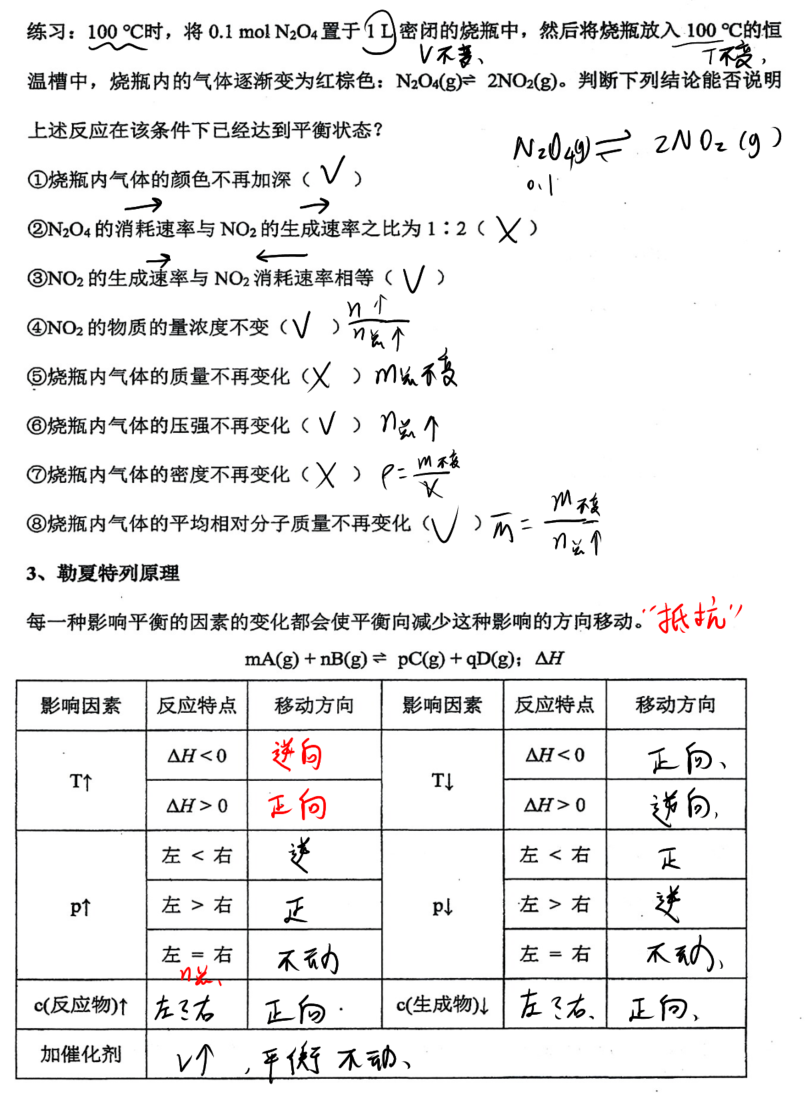 练习：100 ℃时，将 0.1 mol N₂O₄ 置于 1 L 密闭的烧瓶中，然后将烧瓶放入 100 ℃的恒
V不变、 T不变，
温槽中，烧瓶内的气体逐渐变为红棕色：N₂O₄(g)⇌ 2NO₂(g)。判断下列结论能否说明
上述反应在该条件下已经达到平衡状态？
N₂O₄(g) ⇌ 2NO₂(g)
0.1
①烧瓶内气体的颜色不再加深（ √ ）
→ →
②N₂O₄ 的消耗速率与 NO₂ 的生成速率之比为 1∶2（ X ）
→ ←
③NO₂ 的生成速率与 NO₂ 消耗速率相等（ √ ）
④NO₂ 的物质的量浓度不变（ √ ） n↑/n总↑
⑤烧瓶内气体的质量不再变化（ X ） m总不变
⑥烧瓶内气体的压强不再变化（ √ ） n总↑
⑦烧瓶内气体的密度不再变化（ X ） ρ= m不变/V
⑧烧瓶内气体的平均相对分子质量不再变化（ √ ） M̄ = m不变/n总↑
3、勒夏特列原理
每一种影响平衡的因素的变化都会使平衡向减少这种影响的方向移动。“抵抗”
mA(g) + nB(g) ⇌ pC(g) + qD(g)；ΔH
影响因素 反应特点 移动方向 影响因素 反应特点 移动方向
T↑ ΔH < 0 逆向 T↓ ΔH < 0 正向、
ΔH > 0 正向 ΔH > 0 逆向，
p↑ 左 < 右 逆 p↓ 左 < 右 正
左 > 右 正 左 > 右 逆
左 = 右 不动 左 = 右 不动、
n总、
c(反应物)↑ 左?右 正向· c(生成物)↓ 左?右、 正向、
加催化剂 V↑，平衡不动、